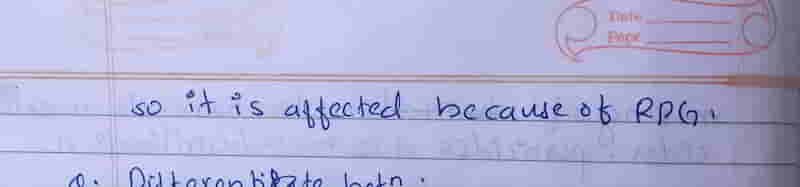 Date
Page
so it is affected because of RPG.
Q. Differentiate betn.